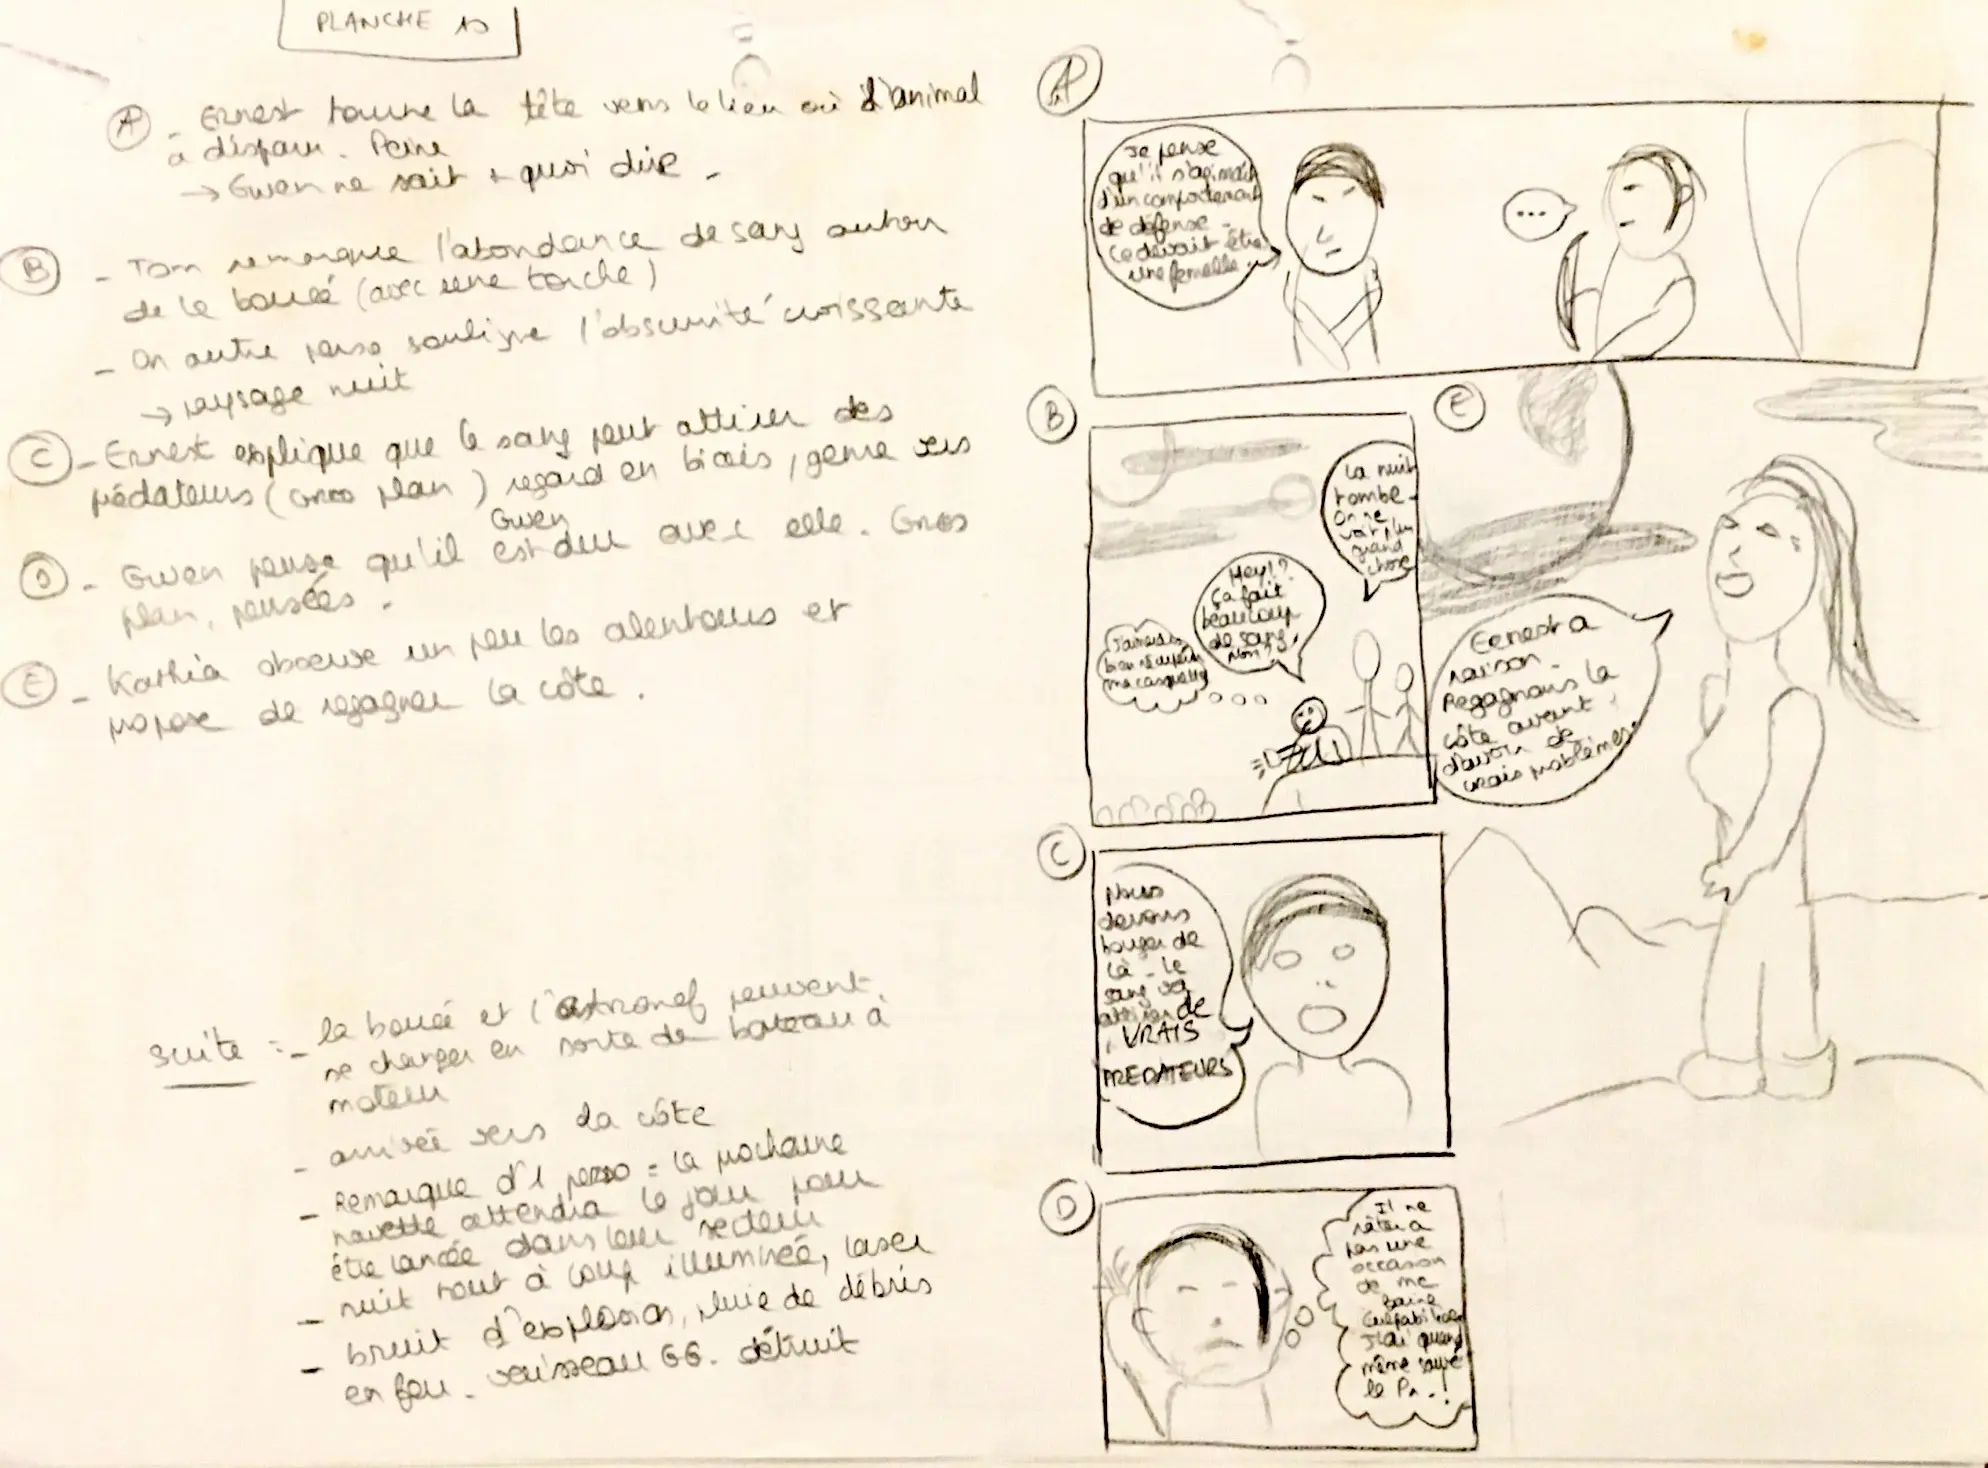 PLANCHE 10
A - Ernest tourne la tête vers le lieu où l'animal
a disparu. Peine
→ Gwen ne sait + quoi dire -
B - Tom remarque l'abondance de sang autour
de la bouée (avec une torche)
- Un autre perso souligne l'obscurité croissante
→ paysage nuit
C - Ernest explique que le sang peut attirer des
prédateurs (Gros plan) regard en biais, genre vers
Gwen
D - Gwen pense qu'il est dur avec elle. Gros
plan, pensées.
E - Kathia observe un peu les alentours et
propose de regagner la côte.
suite : - la bouée et l'astronef peuvent
se changer en sorte de bateau à
moteur
- arrivée vers la côte
- Remarque d'1 perso = la prochaine
navette attendra le jour pour
être lancée dans leur secteur
- nuit tout à coup illuminée, laser
- bruit d'explosion, pluie de débris
en feu. vaisseau GG. détruit
A
Je pense
qu'il s'agissait
d'un comportement
de défense -
ce devait être
une femelle.
...
B
La nuit
tombe -
On ne
voit plus
grand
chose
Hey!?
ça fait
beaucoup
de sang,
non?
J'aimerais
bien récupérer
ma casquette
E
Ernest a
raison -
Regagnons la
côte avant
d'avoir de
vrais problèmes
C
Nous
devons
bouger de
là - le
sang va
attirer de
VRAIS
PREDATEURS
D
Il ne
ratera
pas une
occasion
de me
faire
culpabiliser
J'ai quand
même sauvé
le Pr. !